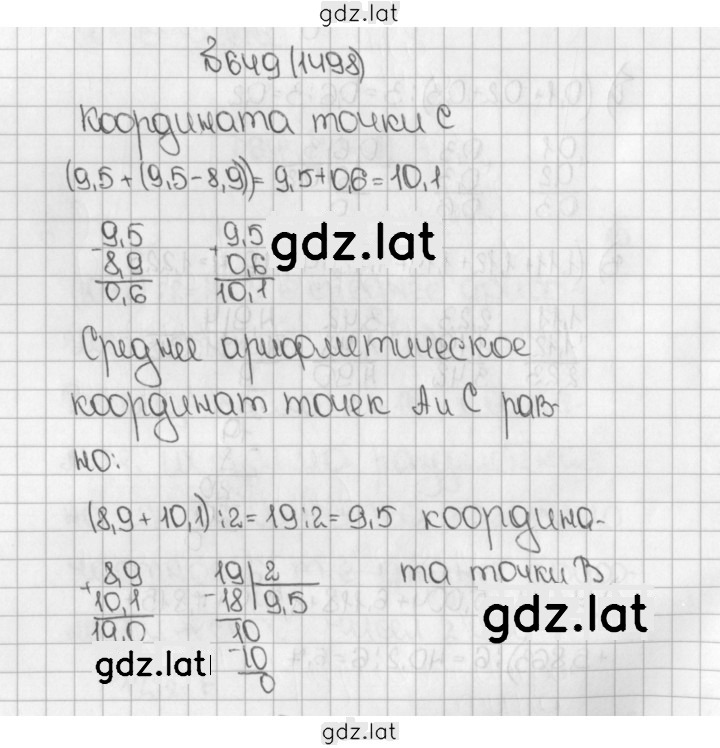 gdz.lat
№649 (1498)
Координата точки С
(9,5 + (9,5 - 8,9)) = 9,5 + 0,6 = 10,1
- 9,5 + 9,5
8,9 0,6
0,6 10,1
gdz.lat
Среднее арифметическое
координат точек А и С рав-
но:
(8,9 + 10,1) : 2 = 19 : 2 = 9,5 координа-
та точки В
+ 8,9 19 | 2
10,1 - 18 | 9,5
19,0 10
- 10
0
gdz.lat
gdz.lat
gdz.lat